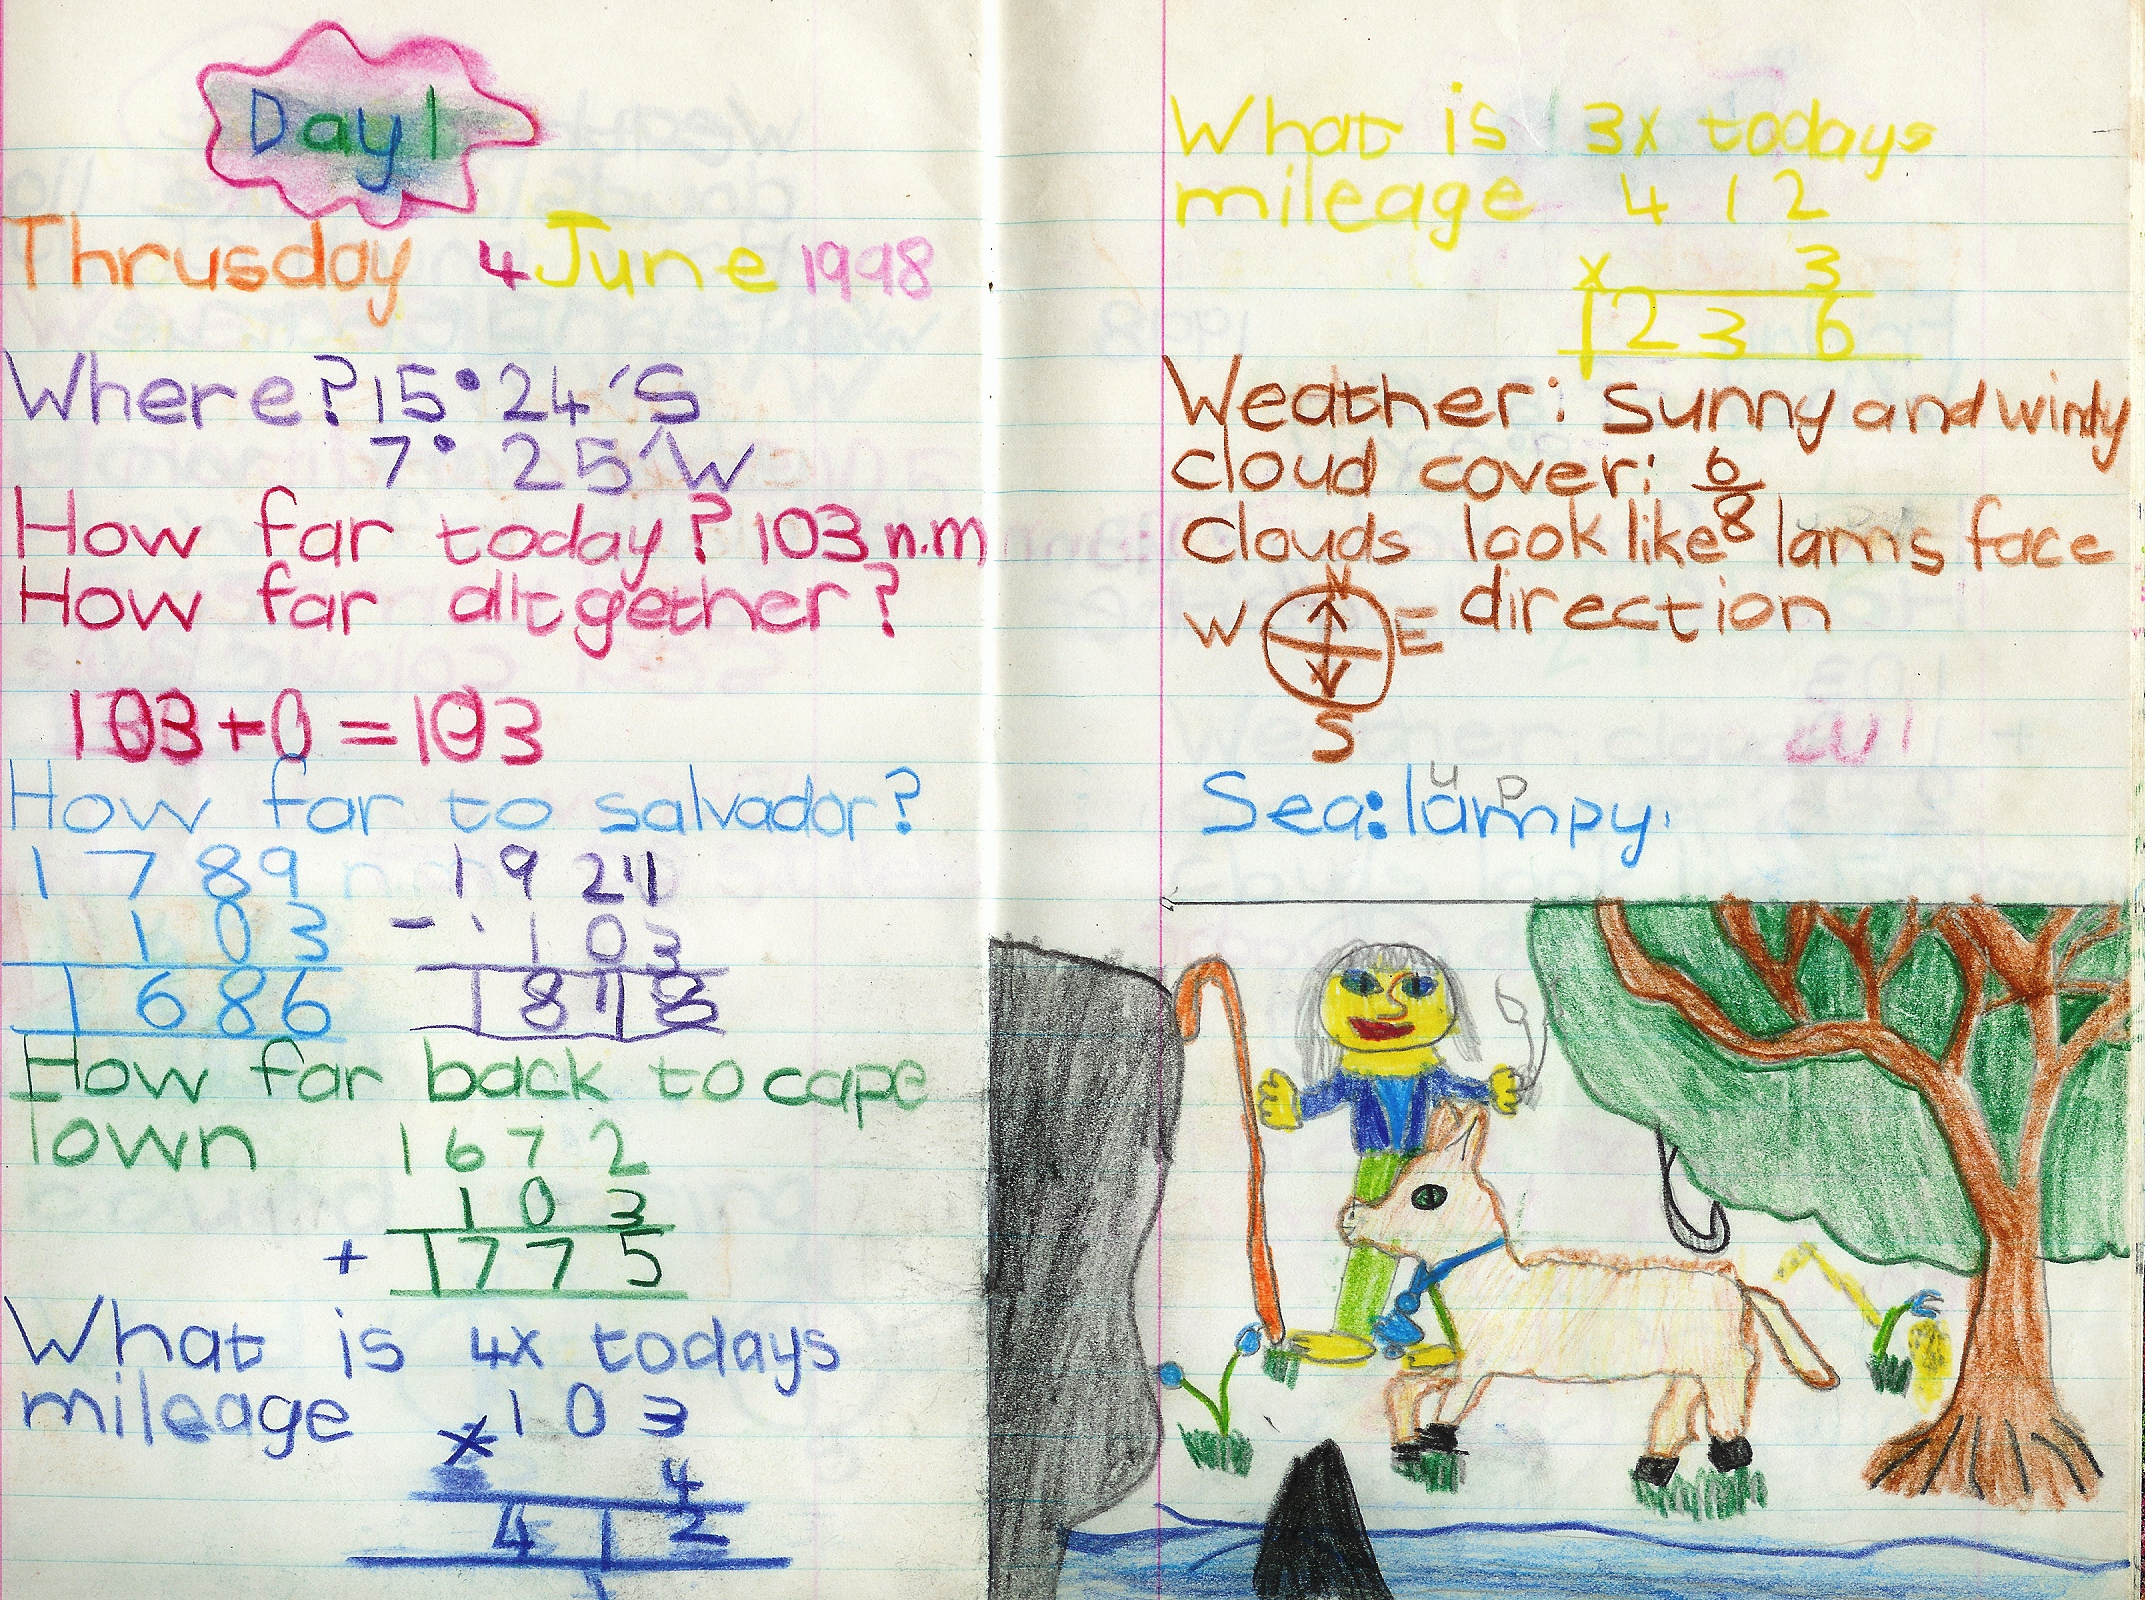 Day 1
Thrusday 4 June 1998
Where? 15° 24 'S
7° 25 'W
How far today? 103 n.m
How far alltgether?
103 + 0 = 103
How far to salvador?
1789
103
1686
1921
- 103
1818
How far back to cape
Town
1672
103
+ 1775
What is 4x todays
mileage
103
x 4
412
What is 3x todays
mileage 412
x 3
1236
Weather: sunny and windy
cloud cover: 6/8
clouds look like lams face
direction
N
W E
S
Sea: lumpy.